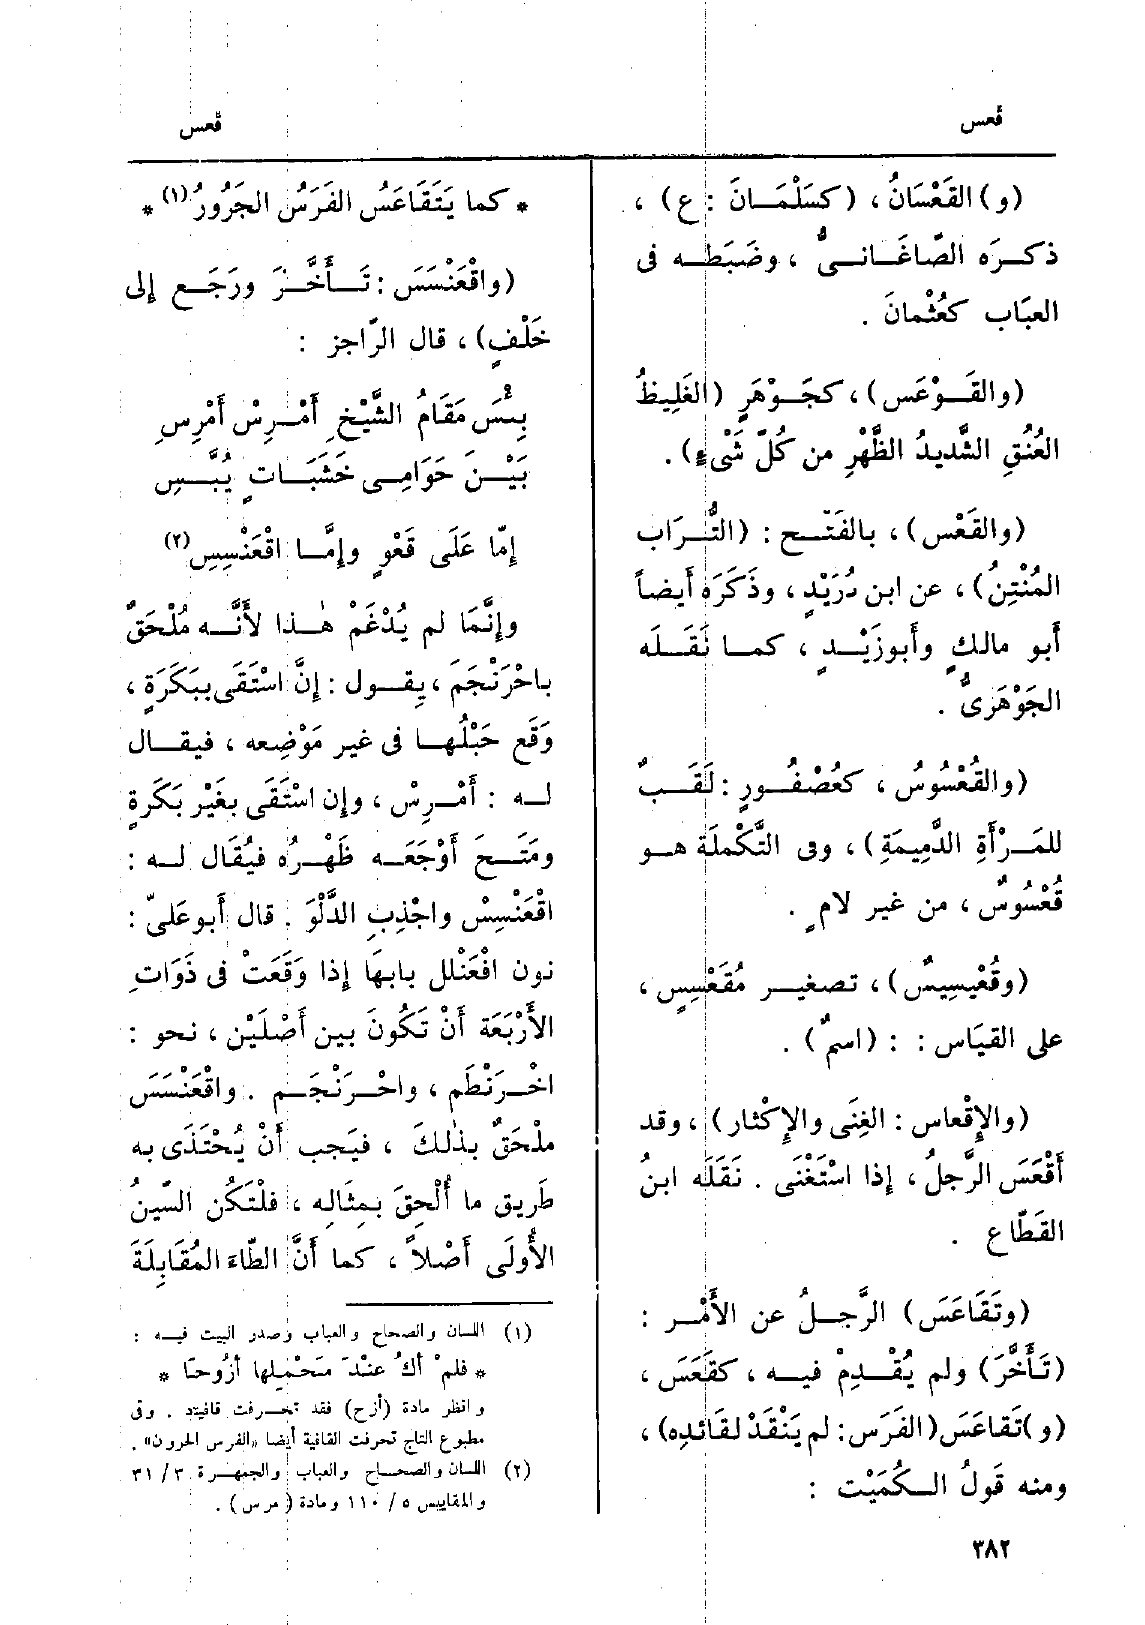 قعس
قعس
(و) القَعْسَانُ، (كسَلْمَـانَ : ع) ،
ذكـرَه الصّاغَـانـىُّ ، وضَبَطـه فى
العبَاب كعُثْمانَ .
(والقَـوْعَس) ، كجَـوْهَرٍ (الغَلِيظُ
العُنُقِ الشَّديدُ الظَّهْرِ من كُلّ شَىْءٍ) .
(والقَعْس) ، بالفَتْـح : (التُّـرَاب
المُنْتِنُ) ، عن ابن دُرَيْدٍ ، وذَكَرَه أَيضاً
أَبو مالكٍ وأَبوزَيْـدٍ ، كمـا نَقَـلَه
الجَوْهَرىُّ .
(والقُعْسُوسُ ، كعُصْفُـورٍ : لَقَـبٌ
للمَـرْأَةِ الدَّمِيمَةِ) ، وفى التَّكْمِلَة هـو
قُعْسُوسٌ ، من غير لامٍ .
(وقُعَيْسِيسٌ) ، تصغيـر مُقْعَنْسِسٍ ،
على القيَاس : : (اسمٌ) .
(والإِقْعاس : الغِنَى والإِكْثار) ، وقد
أَقْعَسَ الرَّجلُ ، إذا اسْتَغْنَى . نَقَلَه ابنُ
القَطّاع .
(وتَقَاعَسَ) الرَّجـلُ عن الأَمْـر :
(تَأَخَّرَ) ولم يُقْـدِمْ فيـه ، كقَعَسَ ،
(و) تَقاعَسَ (الفَرَس: لم يَنْقَدْ لقَائده) ،
ومنه قَولُ الـكُمَيْت :
* كما يَتَقَاعَسُ الفَرَسُ الجَرُورُ (١) *
(واقْعَنْسَسَ : تَـأَخَّـرَ ورَجَـع إلى
خَلْفٍ) ، قال الرّاجز :
بِئْسَ مَقَامُ الشَّيْخِ أَمْـرِسْ أَمْرِسِ
بَيْـنَ حَوَامِـى خَشَبَـاتٍ يُبَّـسِ
إمّا عَلَى قَعْوٍ وإِمَّـا اقْعَنْسِسِ (٢)
وإنَّمَا لم يُدْغَمْ هـٰذا لأَنَّـه مُلْحَقٌ
باحْرَنْجَمَ ، يِقـول : إنَّ اسْتَقَى ببَكَرَةٍ ،
وَقَع حَبْلُهـا فى غير مَوْضِعه ، فيقـال
لـه : أَمْـرِسْ ، وإن اسْتَقَى بغَيْر بَكَرةٍ
ومَتَـحَ أَوْجَعَـه ظَهْـرُه فيُقَال لـه :
اقْعَنْسِسْ واجْذِبِ الدَّلْوَ . قال أَبو عَلىّ :
نون افْعَنْلل بابهَا إذا وَقَعَتْ فى ذَوَاتِ
الأَرْبَعَة أَنْ تَكُونَ بين أَصْلَيْن ، نحو :
اخْـرَنْطَم ، واحْـرَنْجَـم . واقْعَنْسَسَ
ملْحَقٌ بذٰلكَ ، فيَجب أَنْ يُحْتَذَى به
طَريق ما أُلْحِقَ بـمِثَالِه ، فلْتَكُن السّينُ
الأُولَى أَصْلاً ، كما أَنَّ الطّاءَ المُقَابِلَةَ
(١) اللسان والصحاح والعباب وصدر البيت فيـه :
* فلمْ أكُ عنْدَ مَحْمِلها أزُوحًا *
وانظر مادة (أزح) فقد تحرفت قافيته . وفى
مطبوع التاج تحرفت القافية أيضا «الفرس الحرون» .
(٢) اللسان والصحـاح والعباب والجمهـرة ٣ / ٣١
والمقاييس ٥ / ١١٠ ومادة (مرس) .
٣٨٢